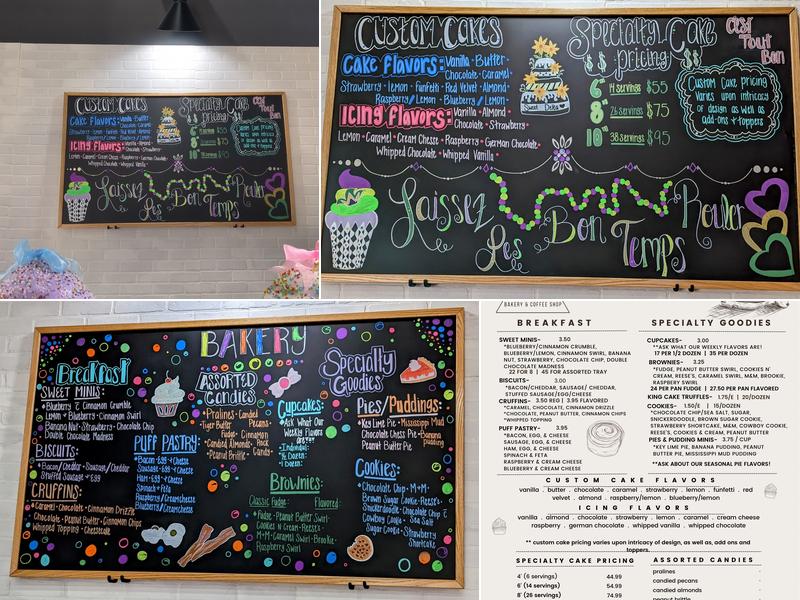 Custom Cakes
Cake Flavors: Vanilla · Butter ·
Chocolate · Caramel ·
Strawberry · Lemon · Funfetti · Red Velvet · Almond ·
Raspberry/Lemon · Blueberry/Lemon ·
Icing Flavors: Vanilla · Almond ·
Chocolate · Strawberry ·
Lemon · Caramel · Cream Cheese · Raspberry · German Chocolate ·
Whipped Chocolate · Whipped Vanilla
Specialty Cake
$$ pricing $$
6" 14 servings $55
8" 26 servings $75
10" 38 servings $95
C'est
Tout
Bon
Custom Cake pricing
Varies upon intricacy
of design as well as
add-ons + toppers
Laissez Les Bon Temps Rouler
Custom Cakes
Cake Flavors: Vanilla · Butter ·
Chocolate · Caramel ·
Strawberry · Lemon · Funfetti · Red Velvet · Almond ·
Raspberry/Lemon · Blueberry/Lemon ·
Icing Flavors: Vanilla · Almond ·
Chocolate · Strawberry ·
Lemon · Caramel · Cream Cheese · Raspberry · German Chocolate
Whipped Chocolate · Whipped Vanilla ·
Sweet Delta
Specialty Cake
$$ pricing $$
6" 14 servings $55
8" 26 servings $75
10" 38 servings $95
C'est
Tout
Bon
Custom Cake pricing
Varies upon intricacy
of design as well as
add-ons + toppers
Laissez Les Bon Temps Rouler
BAKERY
Breakfast
Sweet Minis:
Blueberry & Cinnamon Crumble
Lemon · Blueberry · Cinnamon Swirl
Banana Nut · Strawberry · Chocolate Chip
Double Chocolate Madness
Biscuits:
Bacon/Cheddar · Sausage/Cheddar
Stuffed Sausage
Cruffins:
Caramel · Chocolate · Cinnamon Drizzle
Chocolate · Peanut Butter · Cinnamon Chips
Whipped Topping
Puff Pastry
Bacon · Egg & Cheese
Sausage · Egg & Cheese
Ham · Egg & Cheese
Spinach & Feta
Raspberry/Creamcheese
Blueberry/Creamcheese
Assorted
Candies
Pralines · Candied
Pecans
Fudge · Cinnamon
Pecans
Candied Almonds
Peanut Brittle
Cupcakes:
Ask What Our
Weekly Flavors
are!!
Individual:
½ Dozen:
Dozen:
Brownies:
Classic Fudge Flavored:
Fudge · Peanut Butter Swirl
Cookies n' Cream · Reese's
M+M · Caramel Swirl · Brookie
Raspberry Swirl
Specialty
Goodies
Pies/Puddings:
Key Lime Pie · Mississippi Mud
Chocolate Chess Pie · Banana
Peanut Butter Pie pudding
Cookies:
Chocolate Chip · M+M
Brown Sugar Cookie · Reese's
Snickerdoodle · Chocolate
Cowboy Cookie · Sea Salt
Sugar Cookie · Strawberry
Shortcake
BAKERY & COFFEE SHOP
BREAKFAST
SWEET MINIS- 3.50
*BLUEBERRY/CINNAMON CRUMBLE,
BLUEBERRY/LEMON, CINNAMON SWIRL, BANANA
NUT, STRAWBERRY, CHOCOLATE CHIP, DOUBLE
CHOCOLATE MADNESS
22 FOR 8 | 45 FOR ASSORTED TRAY
BISCUITS- 3.00
*BACON/CHEDDAR, SAUSAGE/ CHEDDAR,
STUFFED SAUSAGE/EGG/CHEESE
CRUFFINS- 3.50 REG | 3.95 FLAVORED
*CARAMEL, CHOCOLATE, CINNAMON DRIZZLE
*CHOCOLATE, PEANUT BUTTER, CINNAMON CHIPS
*WHIPPED TOPPING
PUFF PASTRY- 3.95
*BACON, EGG, & CHEESE
SAUSAGE, EGG, & CHEESE
HAM, EGG, & CHEESE
SPINACH & FETA
RASPBERRY & CREAM CHEESE
BLUEBERRY & CREAM CHEESE
SPECIALTY GOODIES
CUPCAKES- 3.00
**ASK WHAT OUR WEEKLY FLAVORS ARE!
17 PER 1/2 DOZEN | 35 PER DOZEN
BROWNIES- 3.25
*FUDGE, PEANUT BUTTER SWIRL, COOKIES N'
CREAM, REESE'S, CARAMEL SWIRL, M&M, BROOKIE,
RASPBERRY SWIRL
24 PER PAN FUDGE | 27.50 PER PAN FLAVORED
KING CAKE TRUFFLES- 1.75/E | 20/DOZEN
COOKIES- 1.50/E | 15/DOZEN
*CHOCOLATE CHIP/SEA SALT, SUGAR,
SNICKERDOODLE, BROWN SUGAR COOKIE,
STRAWBERRY SHORTCAKE, M&M, COWBOY COOKIE,
REESE'S, COOKIES & CREAM, PEANUT BUTTER
PIES & PUDDING MINIS- 3.75 / CUP
*KEY LIME PIE, BANANA PUDDING, PEANUT
BUTTER PIE, MISSISSIPPI MUD PUDDING
**ASK ABOUT OUR SEASONAL PIE FLAVORS!
CUSTOM CAKE FLAVORS
vanilla . butter . chocolate . caramel . strawberry . lemon . funfetti . red
velvet . almond . raspberry/lemon . blueberry/lemon
ICING FLAVORS
vanilla . almond . chocolate . strawberry . lemon . caramel . cream cheese
raspberry . german chocolate . whipped vanilla . whipped chocolate
** custom cake pricing varies upon intricacy of design, as well as, add ons and
toppers.
SPECIALTY CAKE PRICING
4' (6 servings) 44.99
6' (14 servings) 54.99
8' (26 servings) 74.99
ASSORTED CANDIES
pralines
candied pecans
candied almonds
peanut brittle